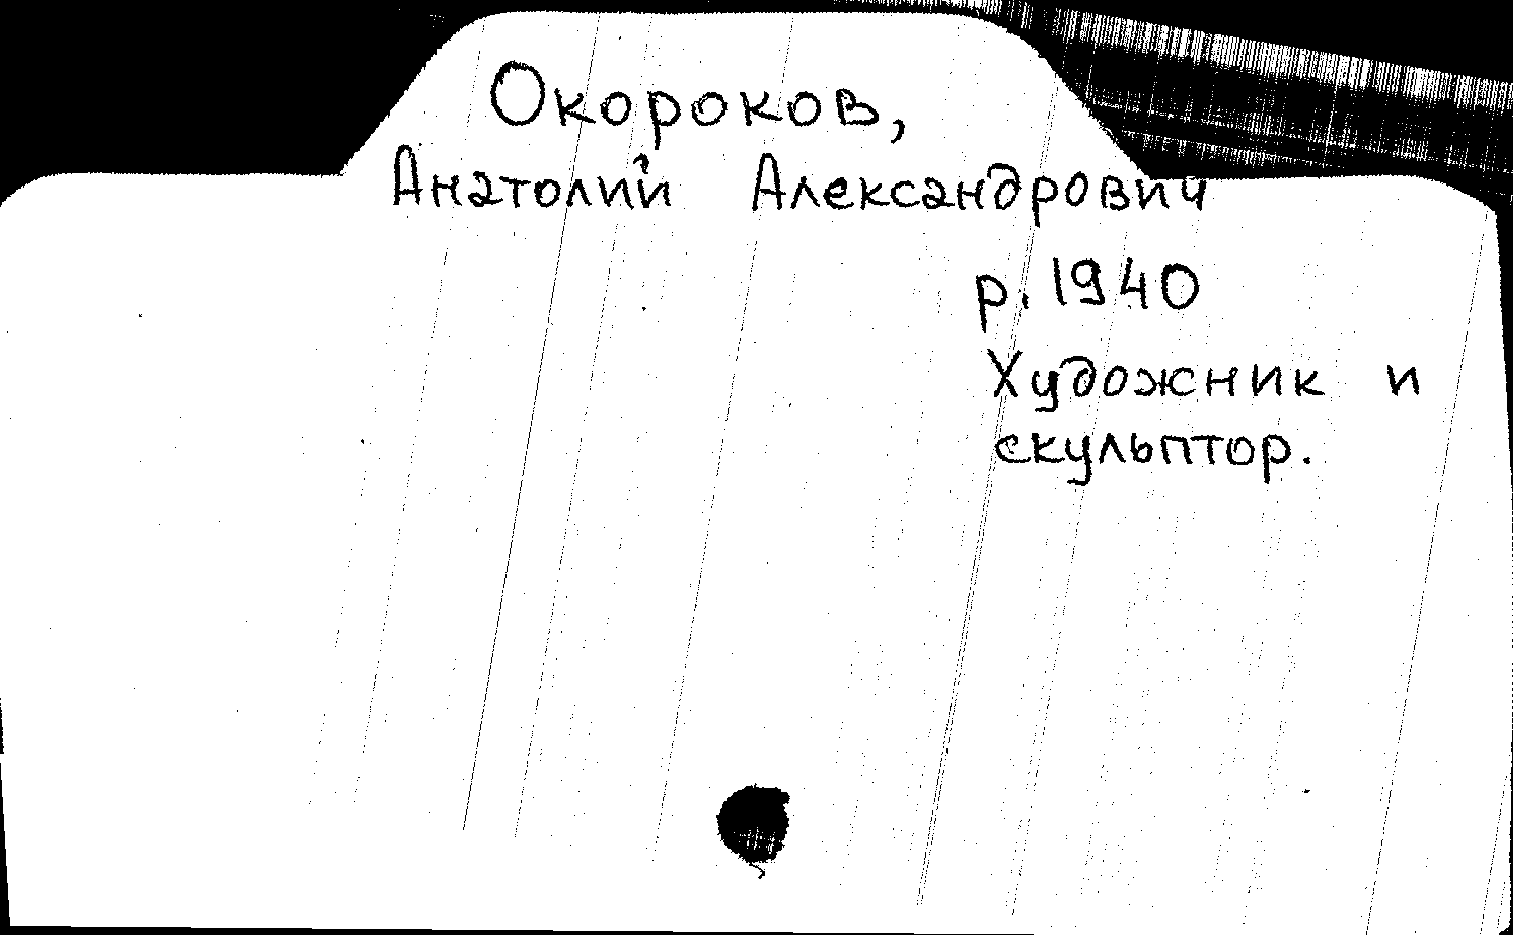 Окороков,
Анатолий Александрович
р. 1940
Художник и
скульптор.